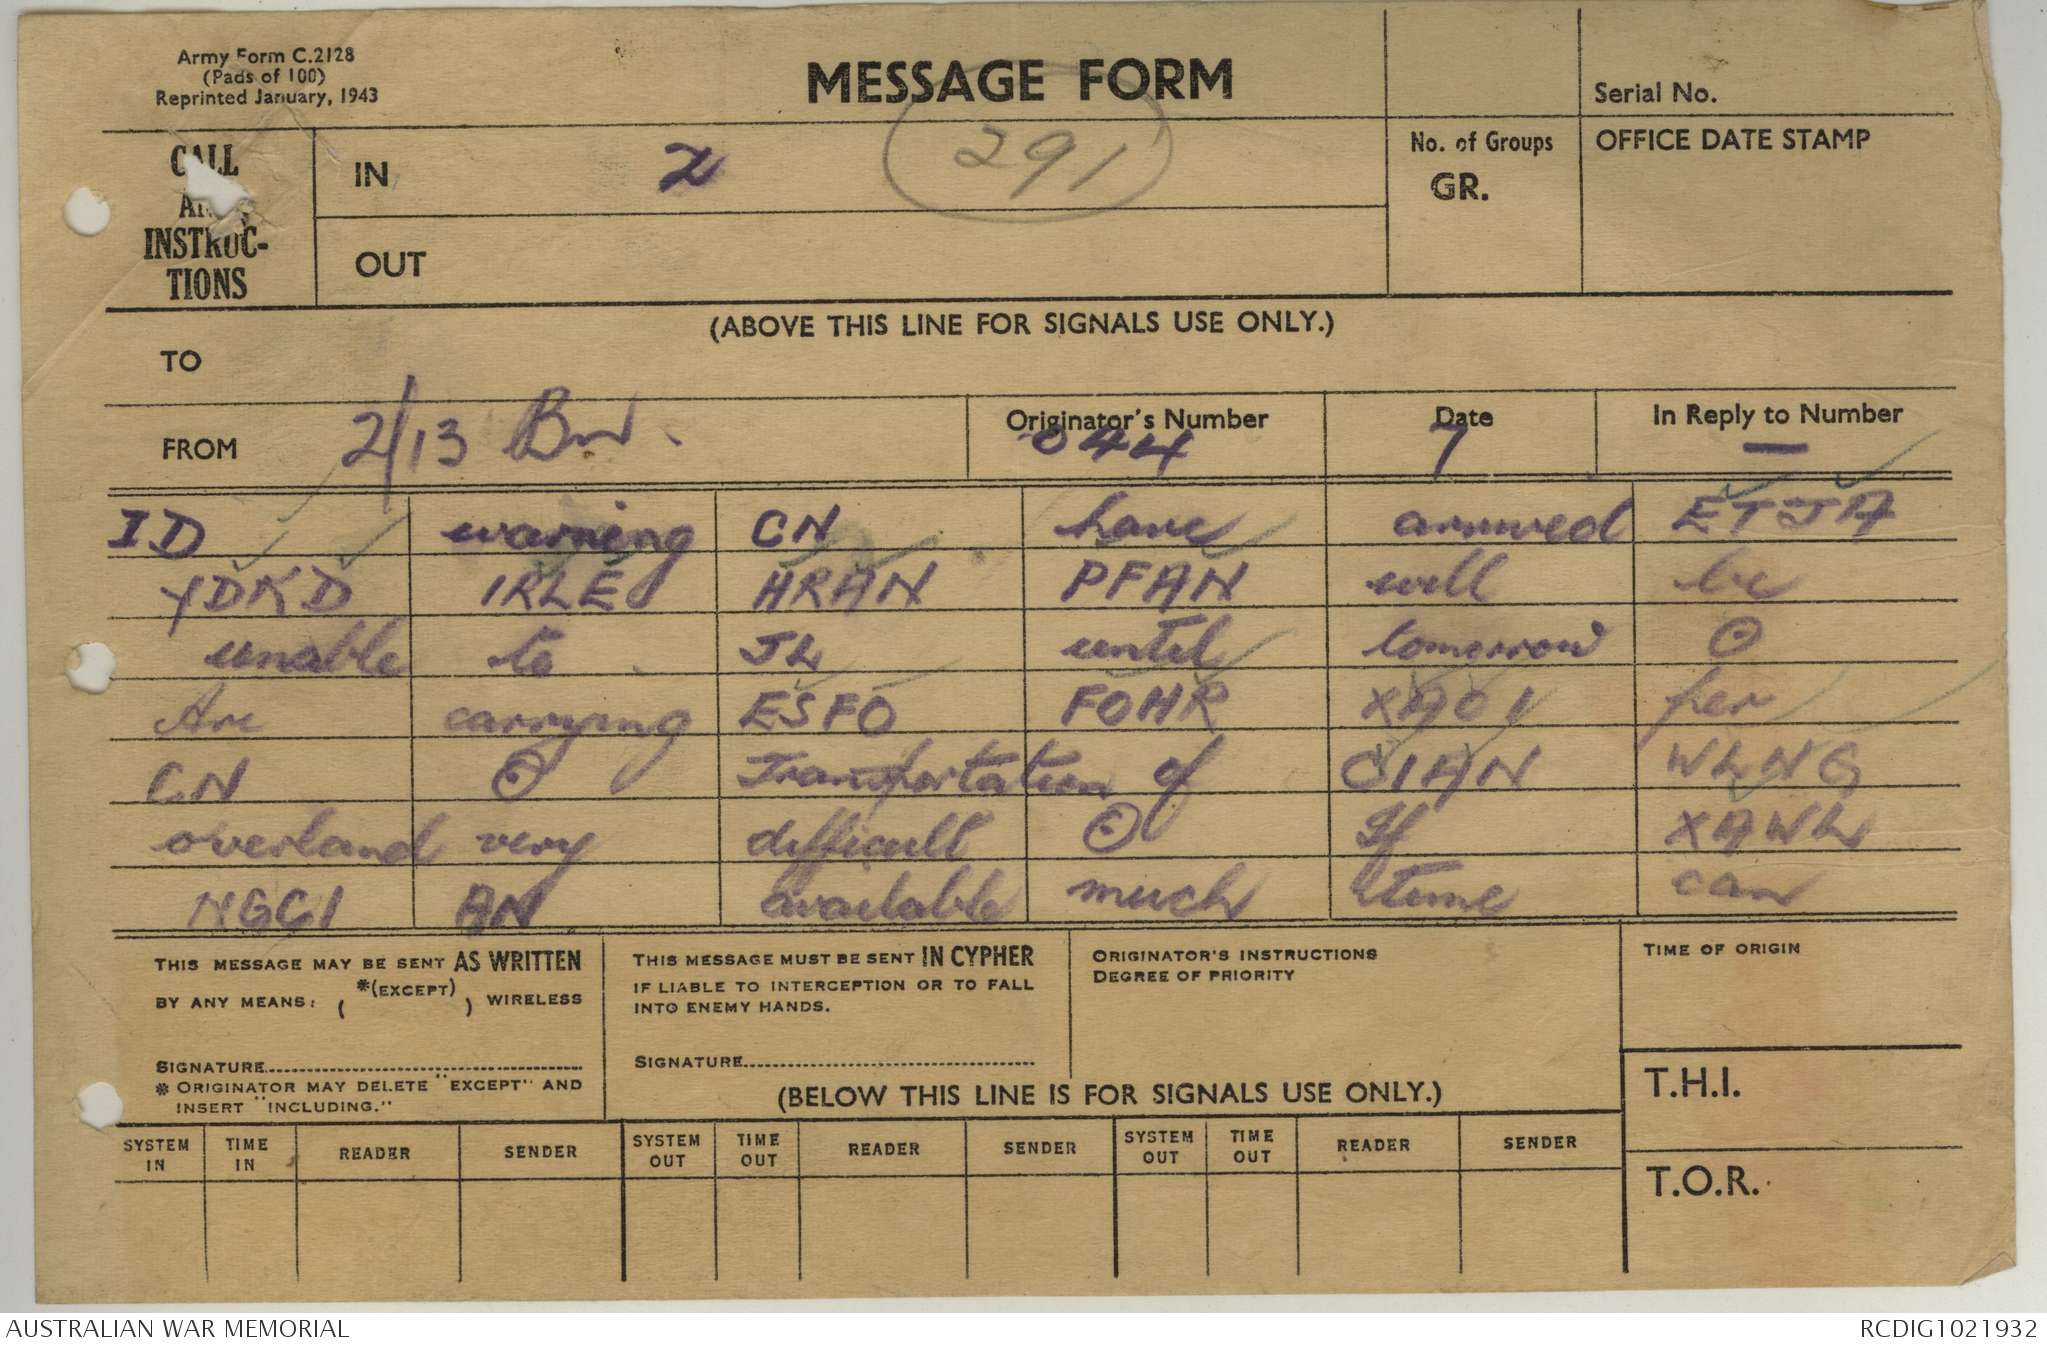 Army Form C.2128
(Pads of 100)
Reprinted January, 1943
MESSAGE FORM
Serial No.
CALL
AND
INSTRUC-
TIONS
IN 2 291
No. of Groups
GR.
OFFICE DATE STAMP
OUT
(ABOVE THIS LINE FOR SIGNALS USE ONLY.)
TO
FROM 2/13 Bn. Originator's Number 044 Date 7 In Reply to Number —
ID warning CN have arrived ETJA
YDKD IRLE HRAN PFAN will be
unable to JL until tomorrow ⊙
Are carrying ESFO FOHR XAOI per
CN ⊙ Transportation of CIAN WLNG
overland very difficult ⊙ If XAWL
NGCI AN available much time can
THIS MESSAGE MAY BE SENT AS WRITTEN
BY ANY MEANS: ( *(EXCEPT) ) WIRELESS
SIGNATURE
* ORIGINATOR MAY DELETE "EXCEPT" AND
INSERT "INCLUDING."
THIS MESSAGE MUST BE SENT IN CYPHER
IF LIABLE TO INTERCEPTION OR TO FALL
INTO ENEMY HANDS.
SIGNATURE
ORIGINATOR'S INSTRUCTIONS
DEGREE OF PRIORITY
TIME OF ORIGIN
(BELOW THIS LINE IS FOR SIGNALS USE ONLY.)
T.H.I.
SYSTEM IN TIME IN READER SENDER SYSTEM OUT TIME OUT READER SENDER SYSTEM OUT TIME OUT READER SENDER
T.O.R.
AUSTRALIAN WAR MEMORIAL RCDIG1021932